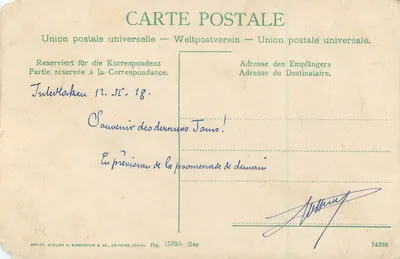 CARTE POSTALE
Union postale universelle — Weltpostverein — Union postale universale.
Reserviert für die Korrespondenz
Partie réservée à la Correspondance.
Adresse des Empfängers
Adresse du Destinataire.
Interlaken 12. IX. 18.
Souvenir des derniers Jours!
En prévision de la promenade de demain
No. 15293. Dép.
74338